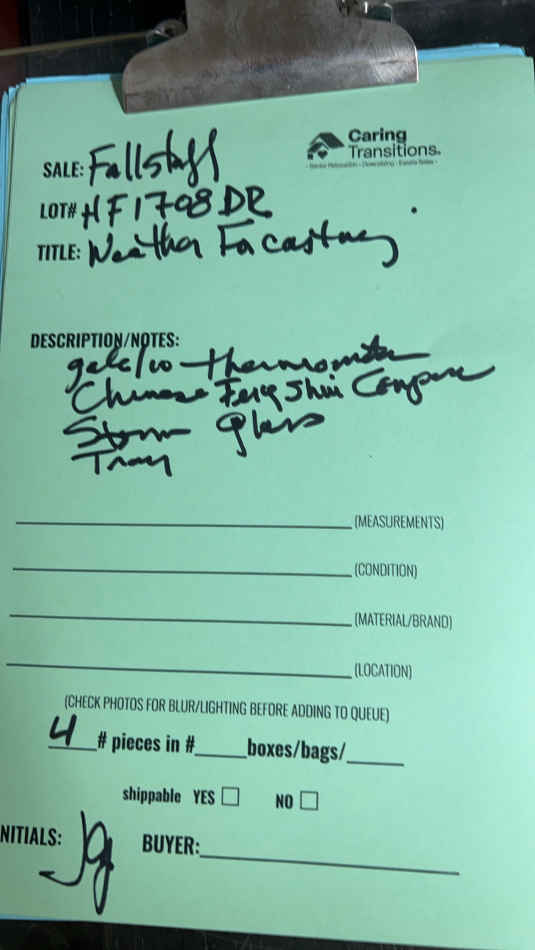 Caring
Transitions.
- Senior Relocation - Downsizing - Estate Sales -
SALE: Fallstaff
LOT# HF1708DR
TITLE: Weather Facasting
DESCRIPTION/NOTES:
thermometer
Chinese Feng Shui
Storm Glass
Tray
(MEASUREMENTS)
(CONDITION)
(MATERIAL/BRAND)
(LOCATION)
(CHECK PHOTOS FOR BLUR/LIGHTING BEFORE ADDING TO QUEUE)
4 # pieces in # boxes/bags/
shippable YES NO
NITIALS: Jg BUYER: